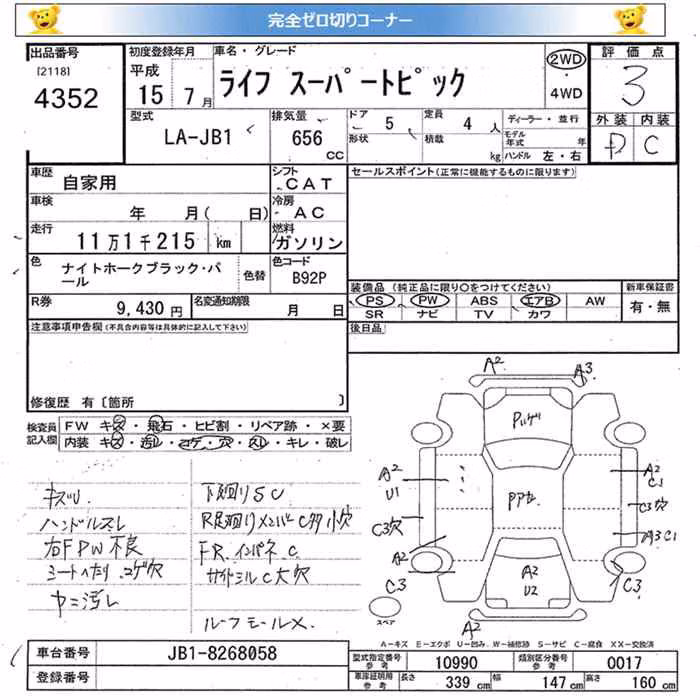 完全ゼロ切りコーナー
出品番号 初度登録年月 車名・グレード 評価点
[2118] 平成 ライフ スーパートピック 2WD 3
4352 15 7月 4WD
型式 排気量 ドア 5 定員 4人 ディーラー・並行 外装 内装
LA-JB1 656 CC 形状 積載 kg モデル年式 年 D C
ハンドル 左・右
車歴 自家用 シフト CAT セールスポイント(正常に機能するものに限ります)
車検 年 月( 日) 冷房 AC
走行 11万1千215 km 燃料 ガソリン
色 ナイトホークブラック・パール 色替 色コード B92P
装備品 (純正品に限り○をつけてください) 新車保証書
R券 9,430円 名変通知期限 月 日 PS PW ABS エアB AW 有・無
SR ナビ TV カワ
注意事項申告欄(不具合内容等は具体的に記入して下さい) 後日品
修復歴 有〔箇所 〕
検査員 FW キズ・飛石・ヒビ割・リペア跡・×要
記入欄 内装 キズ・汚レ・コゲ・穴・スレ・キレ・破レ
A2 A3
A2 U1
A2 C1
C3穴 C3穴
A2
C3 A2 U2 C3
A2
スペア
キズ凹 下廻りSC
ハンドルスレ
右FPW不良 FR.インパネC
コゲ穴
ヤニ汚レ
ルーフモール×
A-キズ E-エクボ U-凹み W-補修跡 S-サビ C-腐食 XX-交換済
車台番号 JB1-8268058 型式指定番号 参考 10990 類別区分番号 参考 0017
登録番号 車庫証明用 参考 長さ 339cm 幅 147cm 高さ 160cm